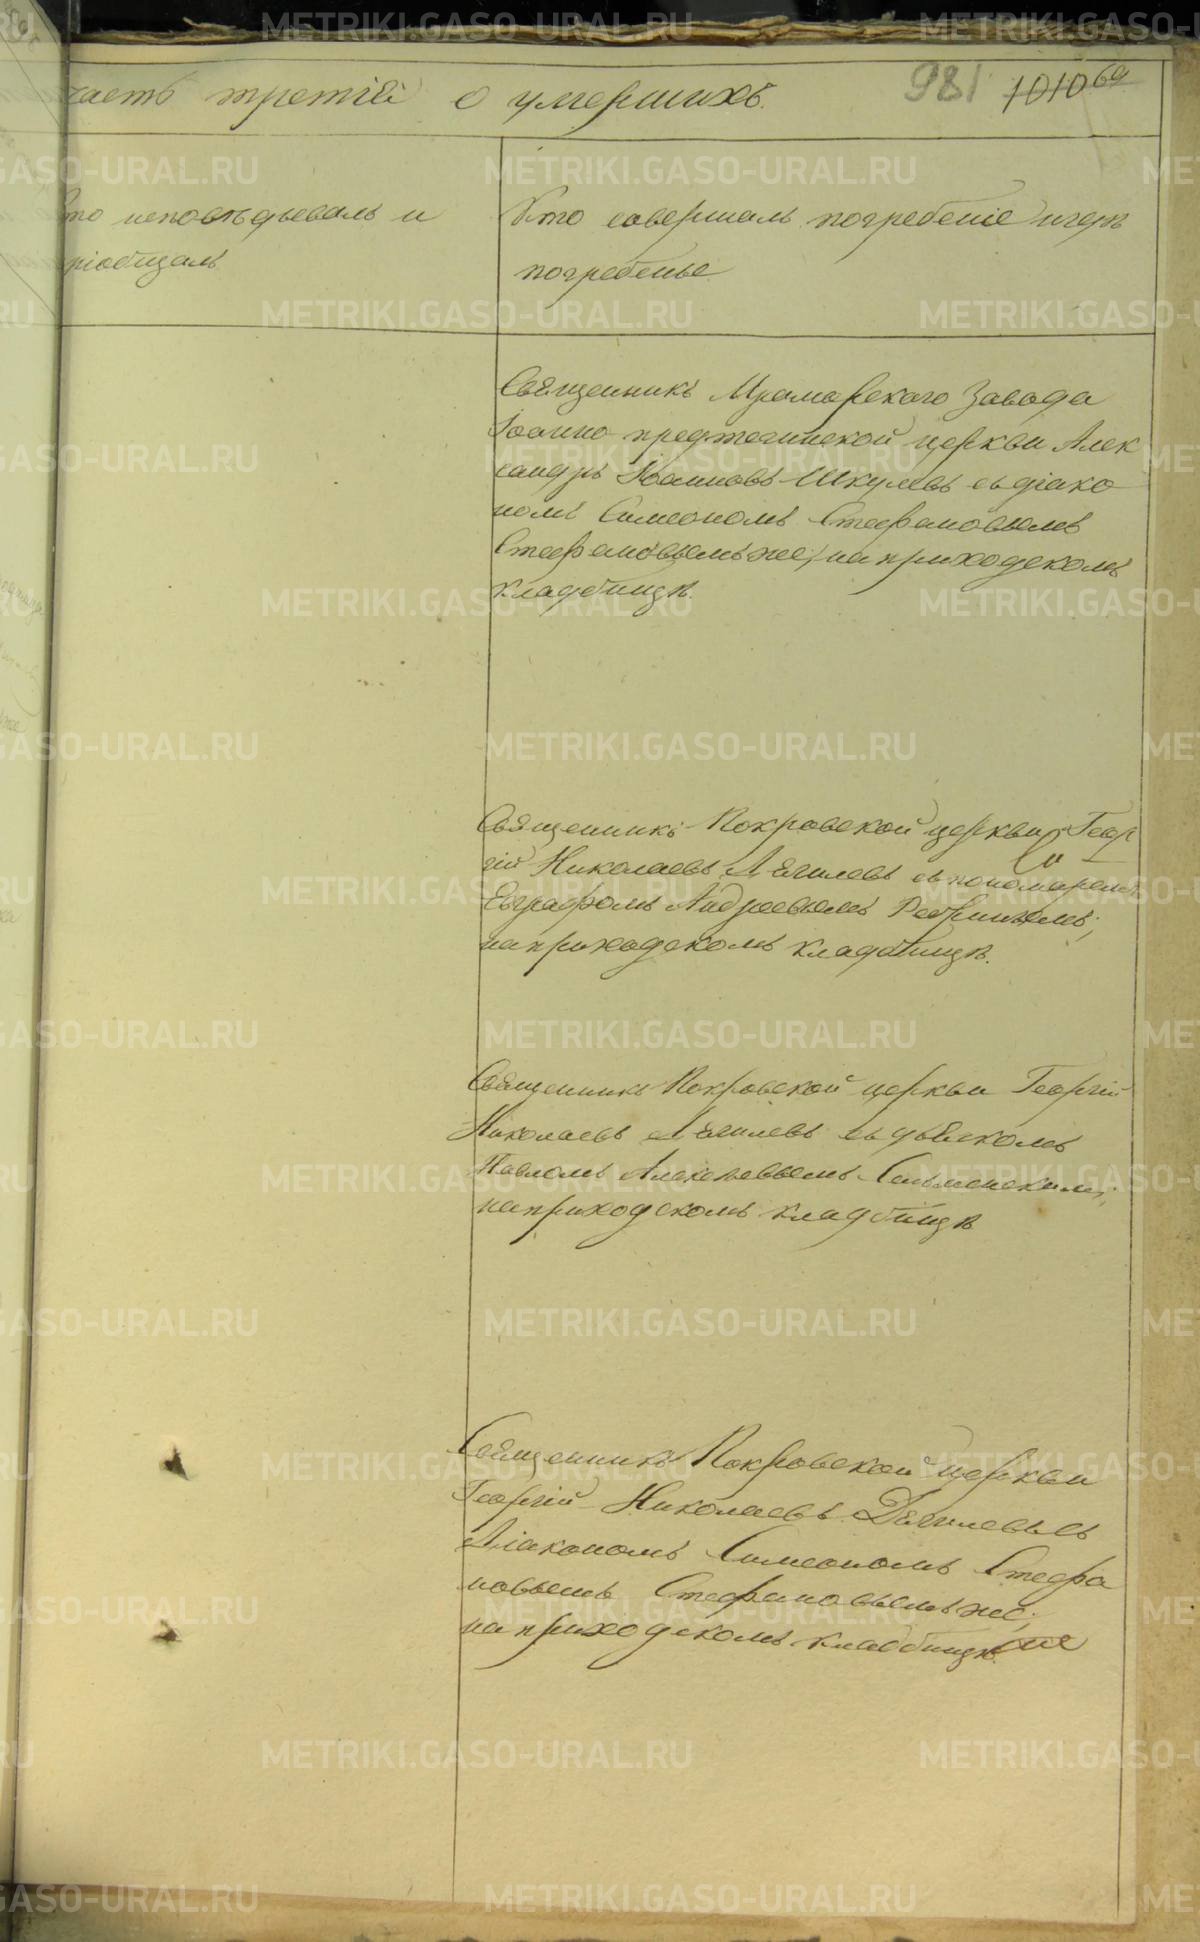 часть третiй о умершихъ. 981 1010 69
кто исповѣдывалъ и
прiобщалъ
Кто совершалъ погребенiе и где
погребенье
Священникъ Мраморскаго Завода
Iоанно предтечинской церкви Алек
сандръ Иоанновъ Шкулевъ съ дiако
номъ Симеономъ Стефановымъ
Стефановымъ же, на приходскомъ
кладбищѣ.
Священникъ Покровской церкви Геор
гiй Николаевъ Дягилевъ съ пономаремъ
Евграфомъ Андреевымъ
на приходскомъ кладбищѣ.
Священникъ Покровской церкви Георгiй
Николаевъ Дягилевъ съ дьячкомъ
Павломъ Алексѣевымъ
на приходскомъ кладбищѣ
Священникъ Покровской церкви
Георгiй Николаевъ Дягилевъ съ
Дiакономъ Симеономъ Стефа
новымъ Стефановымъ же;
на приходскомъ кладбищѣ
METRIKI.GASO-URAL.RU